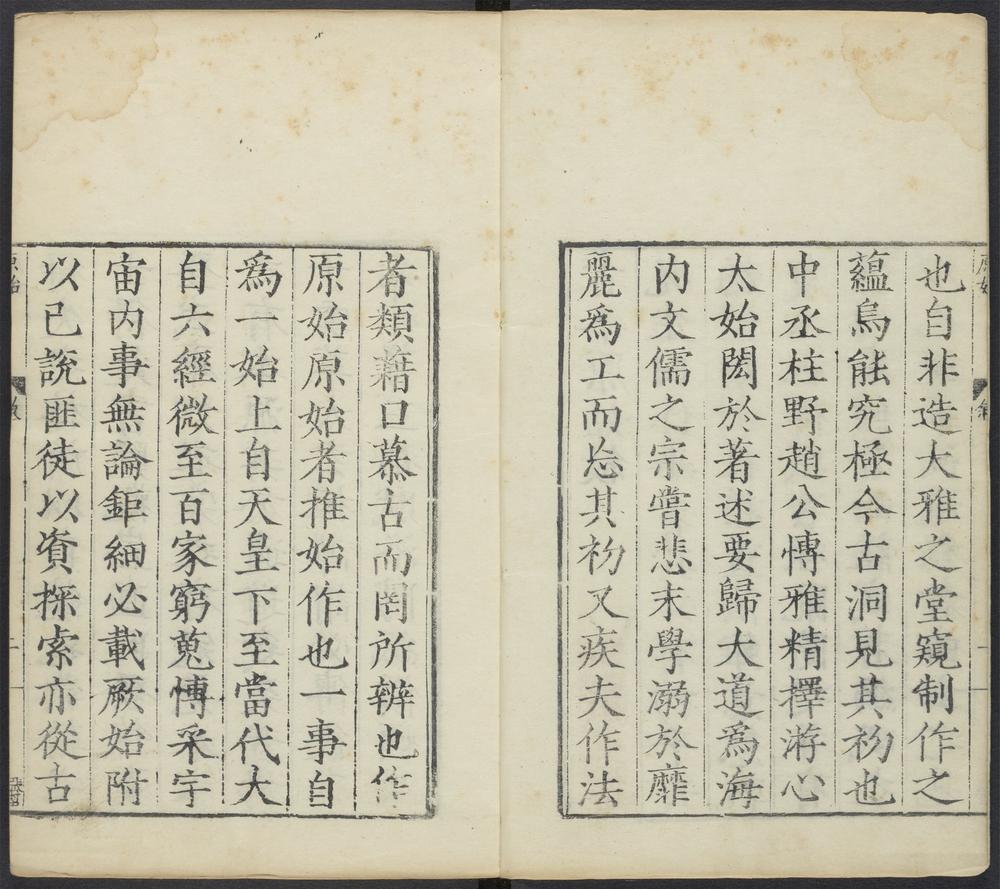 也自非造大雅之堂窺制作之
蘊烏能究極今古洞見其初也
中丞柱野趙公慱雅精擇游心
太始閎於著述要歸大道爲海
内文儒之宗嘗悲末學溺於靡
麗爲工而忘其初又疾夫作法
者類藉口慕古而罔所辨也作
原始原始者推始作也一事自
爲一始上自天皇下至當代大
自六經微至百家窮蒐慱采宇
宙内事無論鉅細必載厥始附
以己說匪徒以資探索亦從古